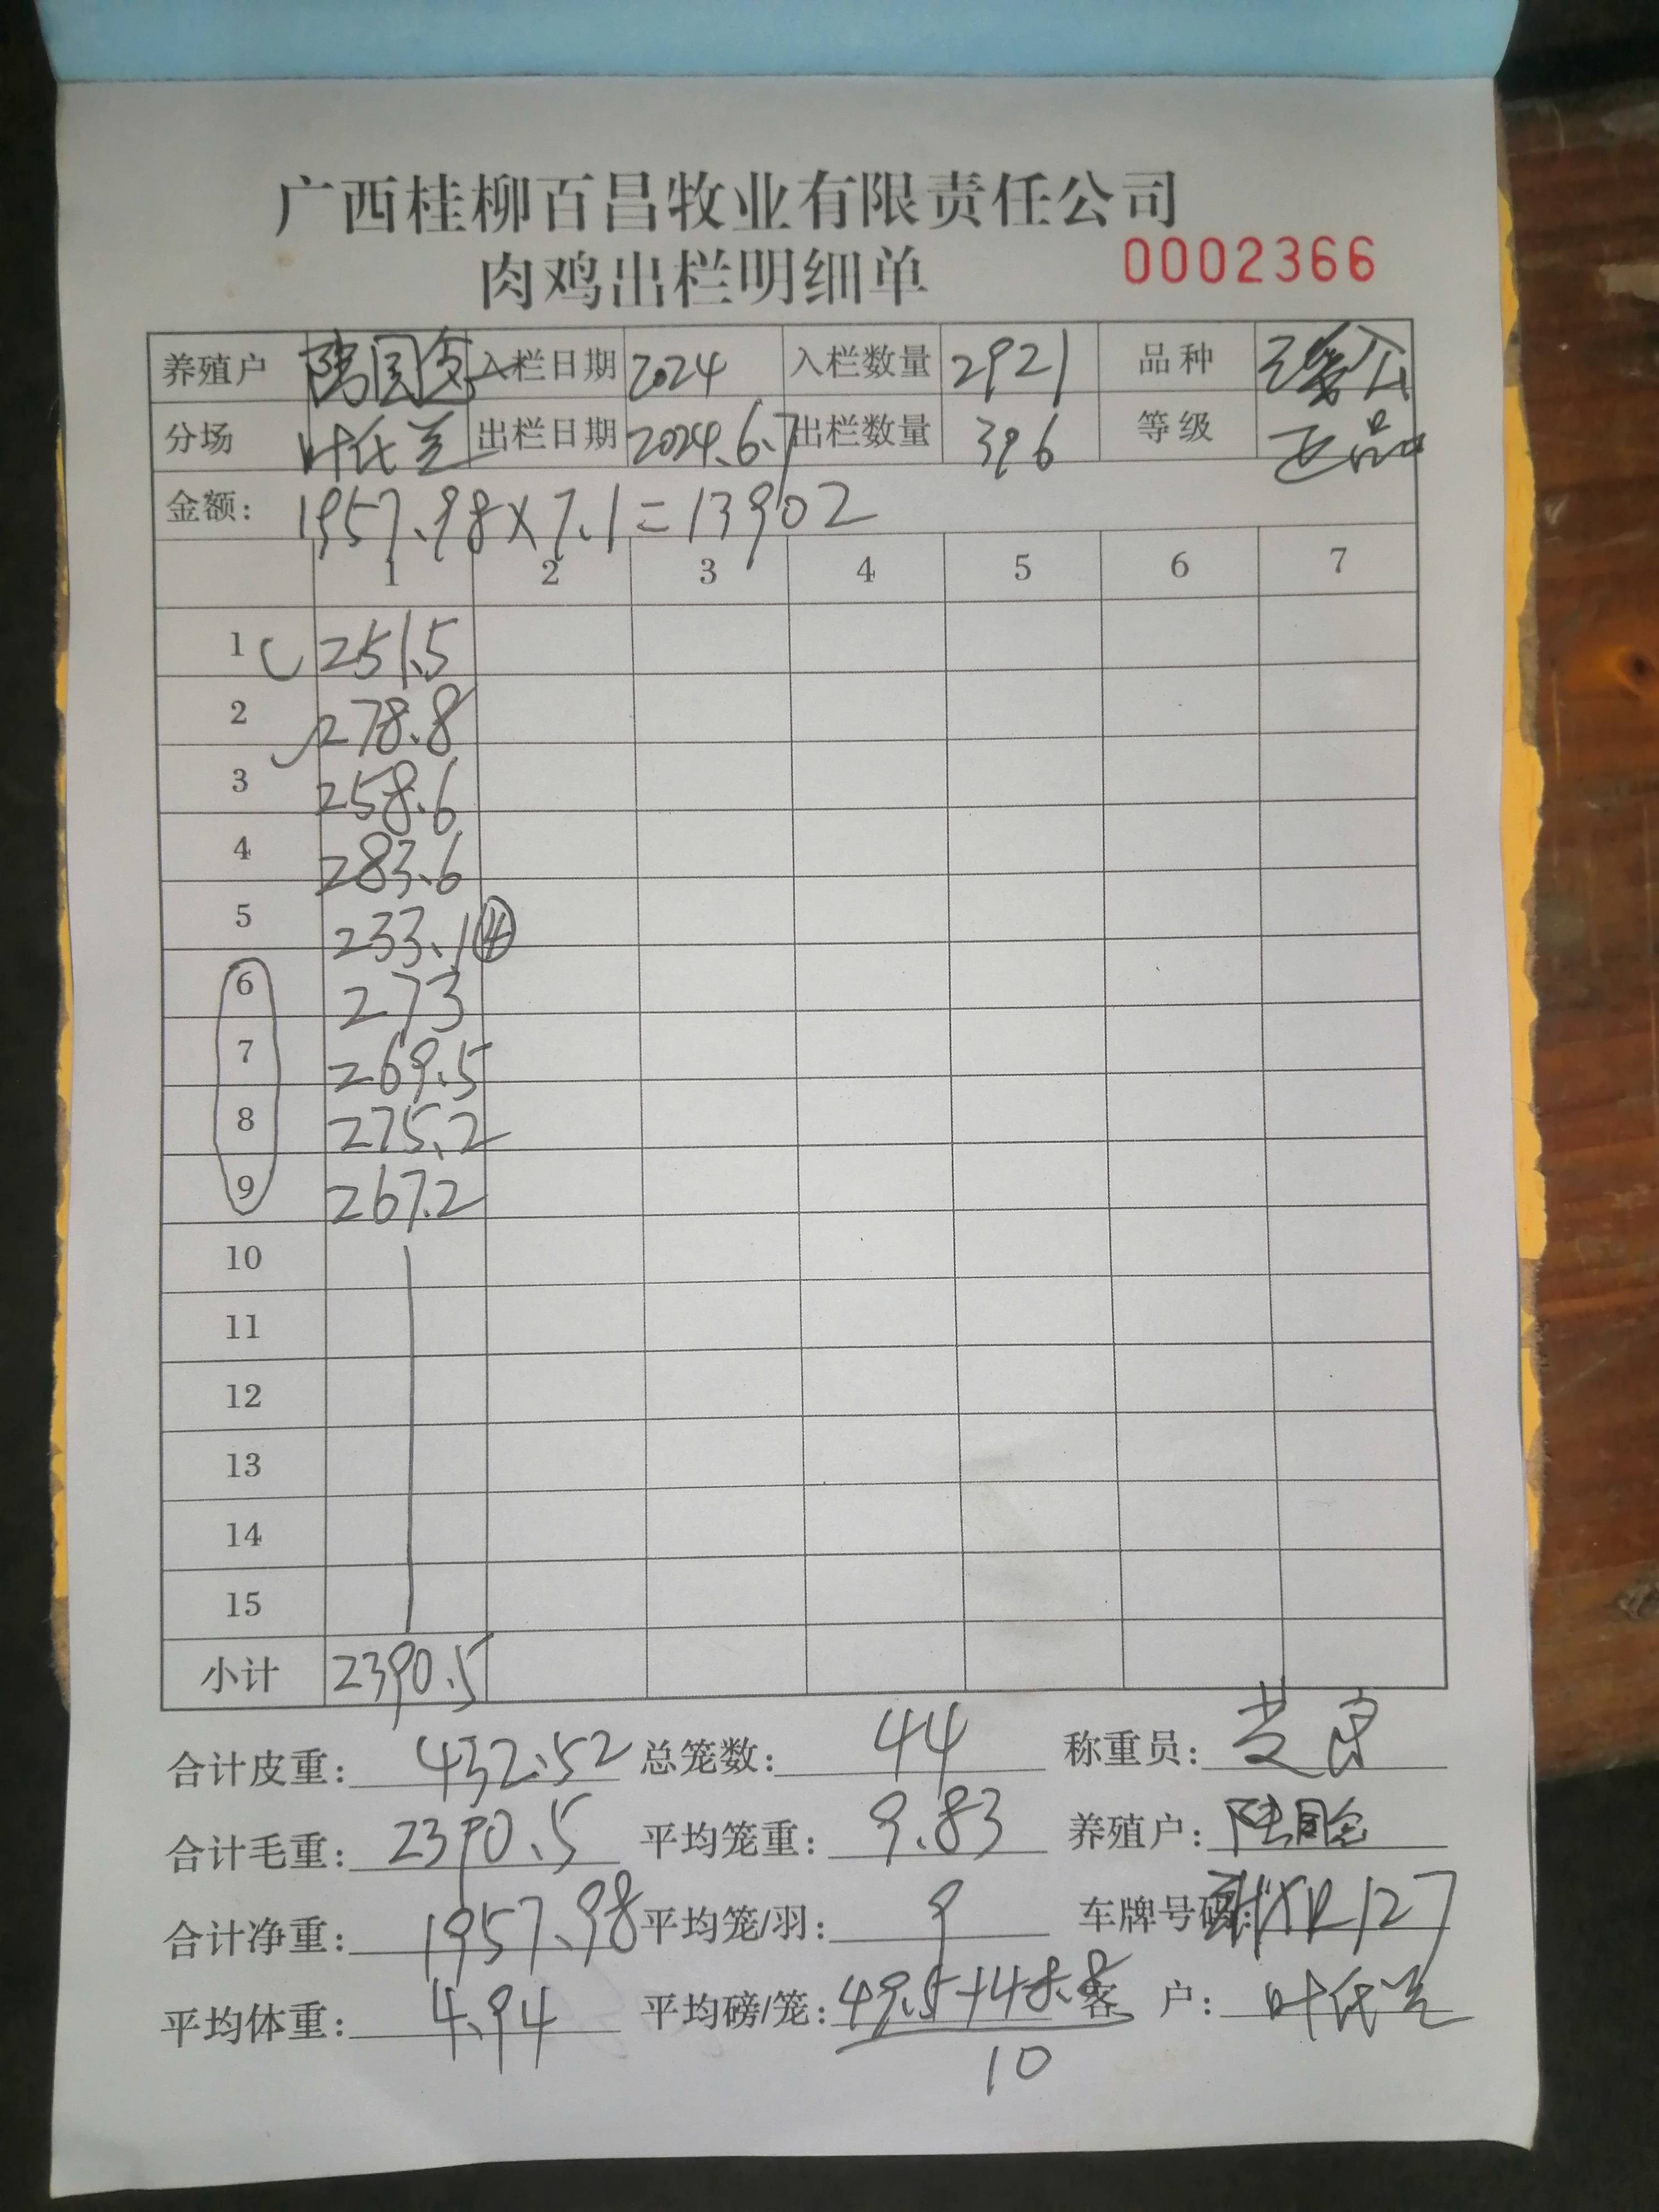 广西桂柳百昌牧业有限责任公司
肉鸡出栏明细单 0002366
养殖户 入栏日期 2024 入栏数量 2921 品种
分场 叶代兰 出栏日期 2024.6.7 出栏数量 396 等级 正品
金额: 1957.98×7.1=13902
1 2 3 4 5 6 7
1 251.5
2 278.8
3 258.6
4 283.6
5 233.1 ④
6 273
7 269.5
8 275.2
9 267.2
10
11
12
13
14
15
小计 2390.5
合计皮重: 432.52 总笼数: 44 称重员:
合计毛重: 2390.5 平均笼重: 9.83 养殖户:
合计净重: 1957.98 平均笼/羽: 9 车牌号码:
平均体重: 4.94 平均磅/笼: 49.5+48.8 客 户: 叶代兰
10